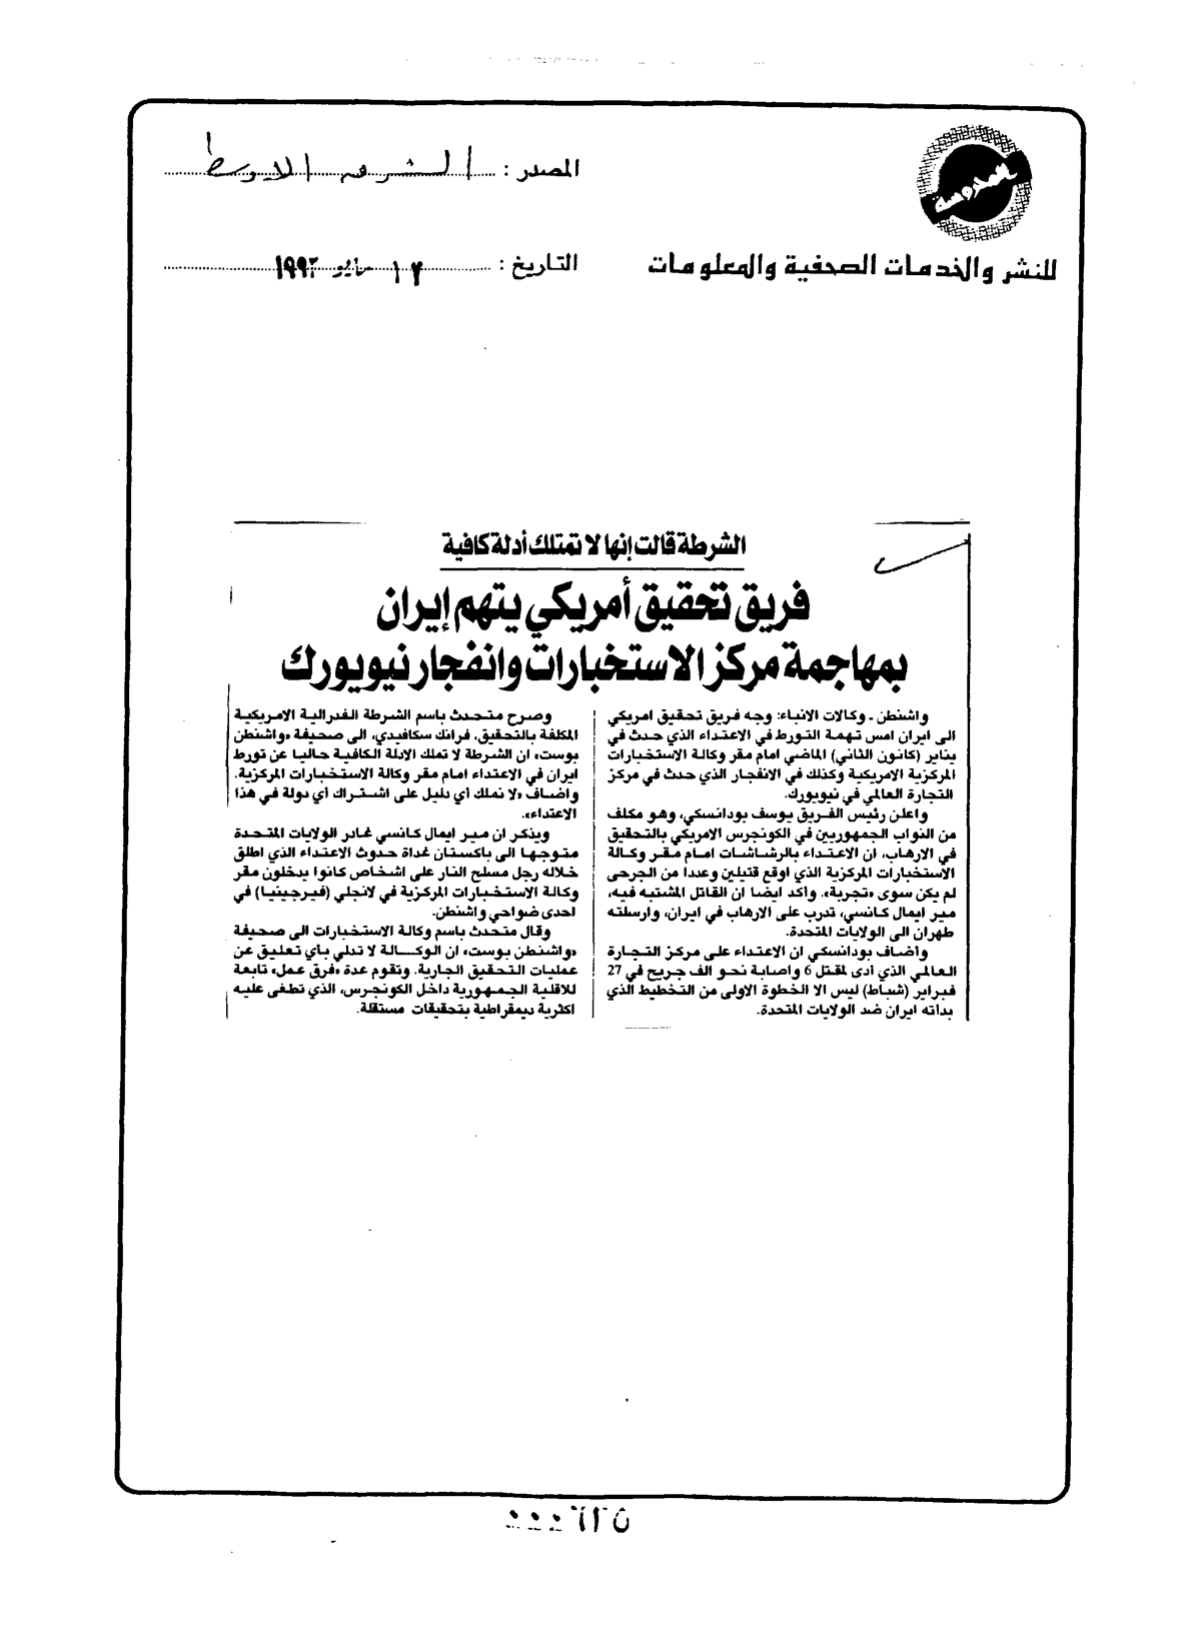 المحروسة
للنشر والخدمات الصحفية والمعلومات
المصدر : الشرق الاوسط
التاريخ : ١٢ مايو ١٩٩٣
الشرطة قالت إنها لا تمتلك أدلة كافية
فريق تحقيق أمريكي يتهم إيران
بمهاجمة مركز الاستخبارات وانفجار نيويورك
واشنطن ـ وكالات الانباء: وجه فريق تحقيق امريكي
الى ايران امس تهمة التورط في الاعتداء الذي حدث في
يناير (كانون الثاني) الماضي امام مقر وكالة الاستخبارات
المركزية الامريكية وكذلك في الانفجار الذي حدث في مركز
التجارة العالمي في نيويورك.
واعلن رئيس الفريق يوسف بودانسكي، وهو مكلف
من النواب الجمهوريين في الكونجرس الامريكي بالتحقيق
في الارهاب، ان الاعتداء بالرشاشات امام مقر وكالة
الاستخبارات المركزية الذي اوقع قتيلين وعددا من الجرحى
لم يكن سوى «تجربة». واكد ايضا ان القاتل المشتبه فيه،
مير ايمال كانسي، تدرب على الارهاب في ايران، وارسلته
طهران الى الولايات المتحدة.
واضاف بودانسكي ان الاعتداء على مركز التجارة
العالمي الذي ادى لمقتل 6 واصابة نحو الف جريح في 27
فبراير (شباط) ليس الا الخطوة الاولى من التخطيط الذي
بدأته ايران ضد الولايات المتحدة.
وصرح متحدث باسم الشرطة الفدرالية الامريكية
المكلفة بالتحقيق، فرانك سكافيدي، الى صحيفة «واشنطن
بوست» ان الشرطة لا تملك الادلة الكافية حاليا عن تورط
ايران في الاعتداء امام مقر وكالة الاستخبارات المركزية.
واضاف «لا نملك أي دليل على اشتراك أي دولة في هذا
الاعتداء».
ويذكر ان مير ايمال كانسي غادر الولايات المتحدة
متوجها الى باكستان غداة حدوث الاعتداء الذي اطلق
خلاله رجل مسلح النار على اشخاص كانوا يدخلون مقر
وكالة الاستخبارات المركزية في لانجلي (فيرجينيا) في
احدى ضواحي واشنطن.
وقال متحدث باسم وكالة الاستخبارات الى صحيفة
«واشنطن بوست» ان الوكالة لا تدلي بأي تعليق عن
عمليات التحقيق الجارية. وتقوم عدة «فرق عمل» تابعة
للاقلية الجمهورية داخل الكونجرس، الذي تطغى عليه
اكثرية ديمقراطية بتحقيقات مستقلة.